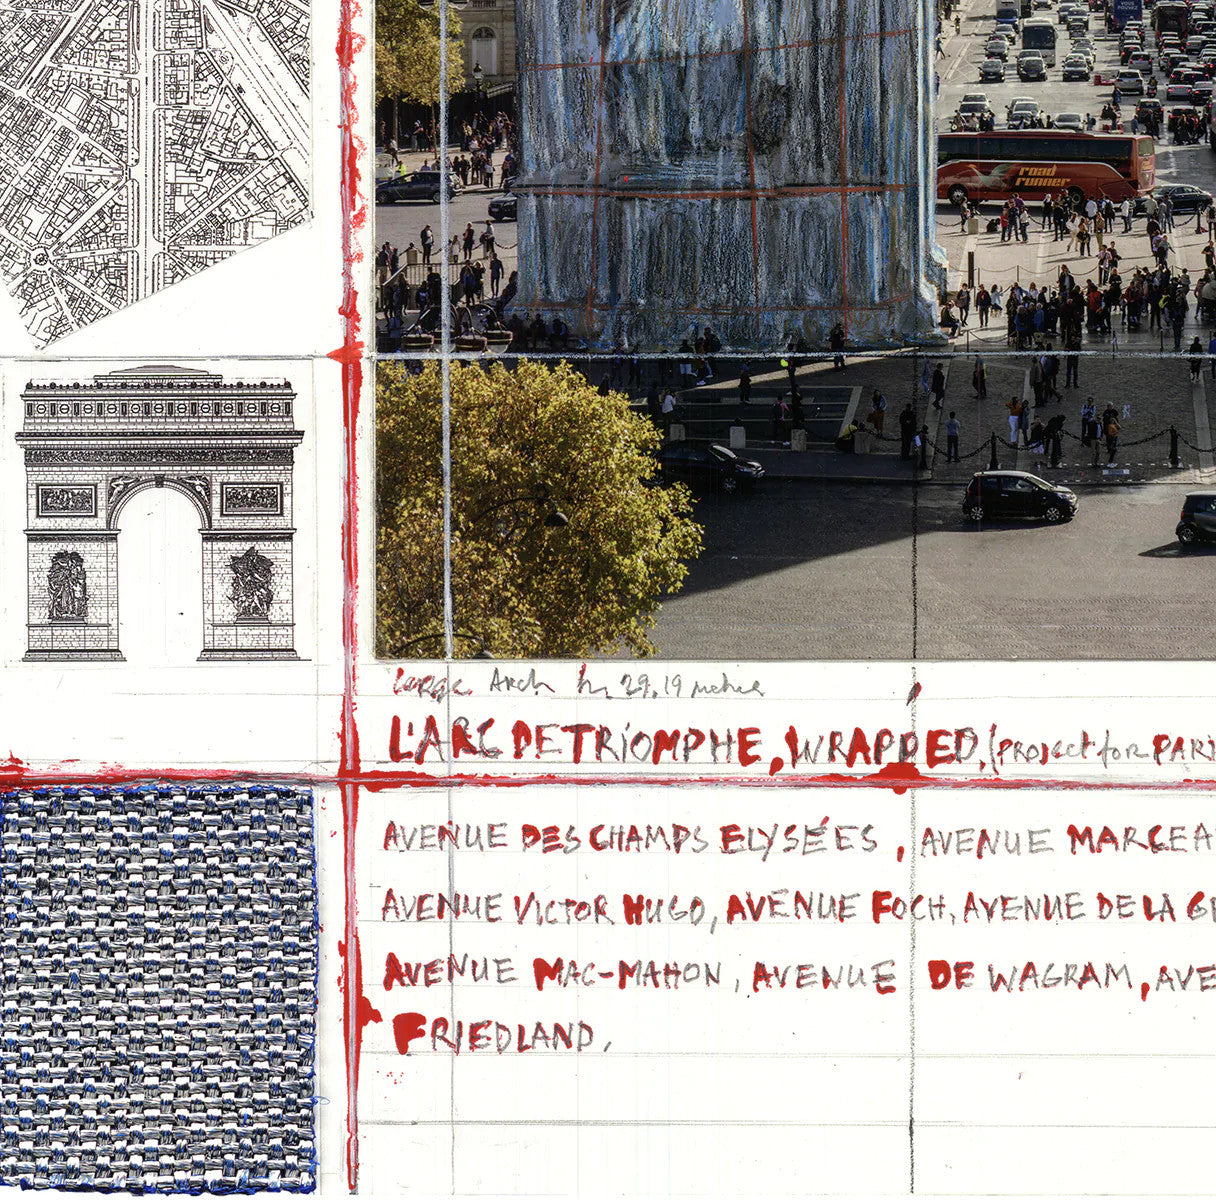 VOUS
POUVEZ
road
runner
Large Arch h. 29.19
L'ARC DE TRIOMPHE, WRAPPED, (PROJECT for PARI
AVENUE DES CHAMPS ELYSÉES, AVENUE MARCEA
AVENUE VICTOR HUGO, AVENUE FOCH, AVENUE DE LA G
AVENUE MAC-MAHON, AVENUE DE WAGRAM, AVE
FRIEDLAND,